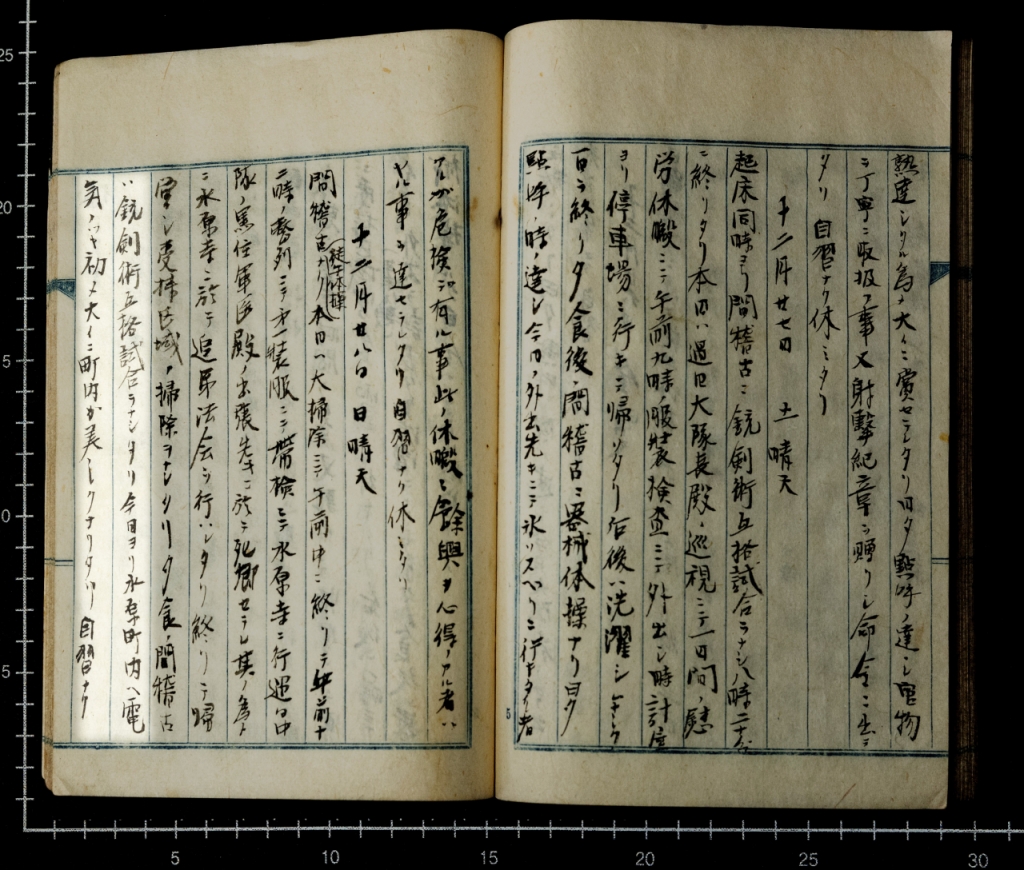 熟達シタル為メ大イニ賞セラレタリ 夕点呼ノ達シ官物
ヲ丁寧ニ取扱フ事又射撃紀章ヲ贈リシ命令ニ出テ
タリ 自習ナク休ミタリ
十二月廿七日 土 晴天
起床同時ヨリ間稽古ニ銃剣術互格試合ヲナシ八時二十分
ニ終リタリ本日ハ過日大隊長殿ノ巡視ニテ一日間ノ慰
労休暇ニテ午前九時服装検査ニテ外出シ時計屋
ヨリ停車場ニ行キテ帰リタリ 后後ハ洗濯シ
一日ヲ終リ夕食後ノ間稽古ニ器械体操ナリ
点呼ノ時ノ達シ今日ノ外出先キニテ氷リスベリニ行キタル者
アルガ危険ニ有ル事此ノ休暇ニ余興ヲ心得アル者ハ
ヤル事ヲ達セラレタリ 自習ナク休ミタリ
十二月廿八日 日 晴天
間稽古ナリ(徒手体操)本日ハ大掃除ニテ午前中ニ終リテ午前十
二時ノ整列ニテ第一装服ニテ帯検シテ水原寺ニ行
隊ノ 軍医殿ノ出張先キニ於テ死 セラレ其ノ為メ
ニ水原寺ニ於テ追弔法会ヲ行ハレタリ終リテ帰
営シ受持区域ノ掃除ヲナシタリ夕食ノ間稽古
ハ銃剣術互格試合ヲナシタリ今日ヨリ水原町内ヘ電
気ノツキ初メ大イニ町内ガ美シクナリタリ 自習ナク